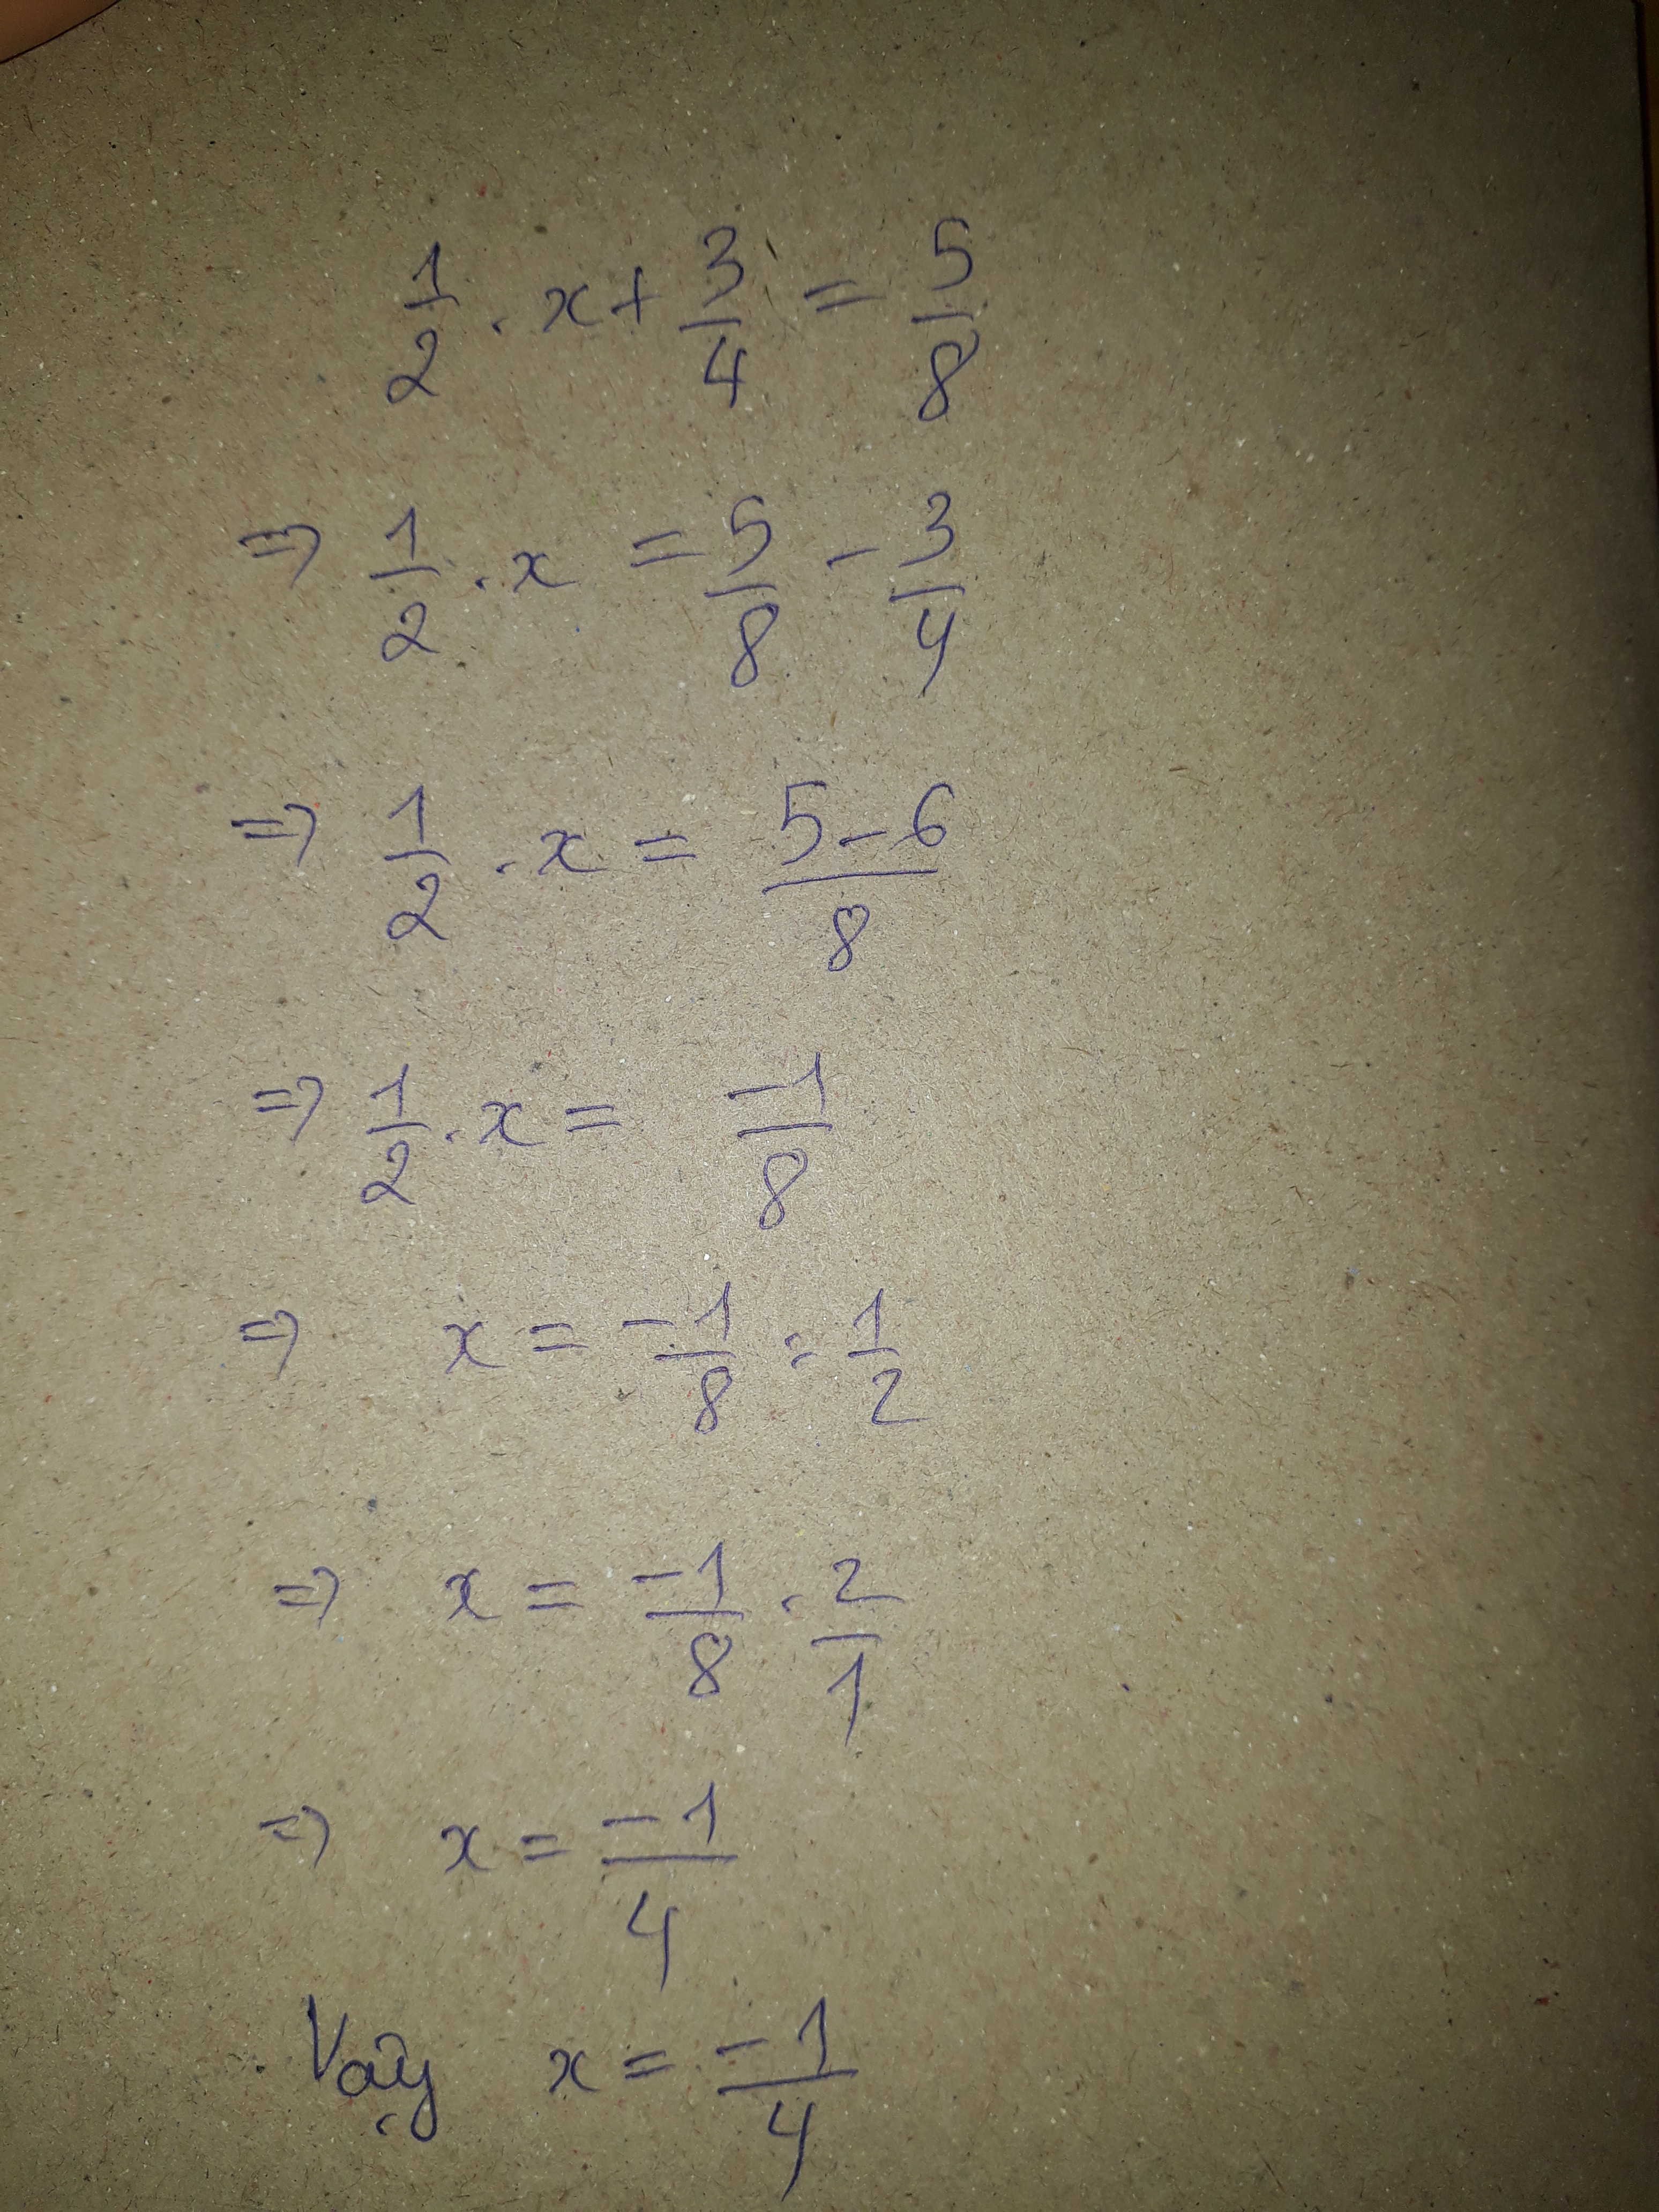 1/2 . x + 3/4 = 5/8
=> 1/2 . x = 5/8 - 3/4
=> 1/2 . x = (5-6)/8
=> 1/2 . x = -1/8
=> x = -1/8 : 1/2
=> x = -1/8 . 2/1
=> x = -1/4
Vậy x = -1/4